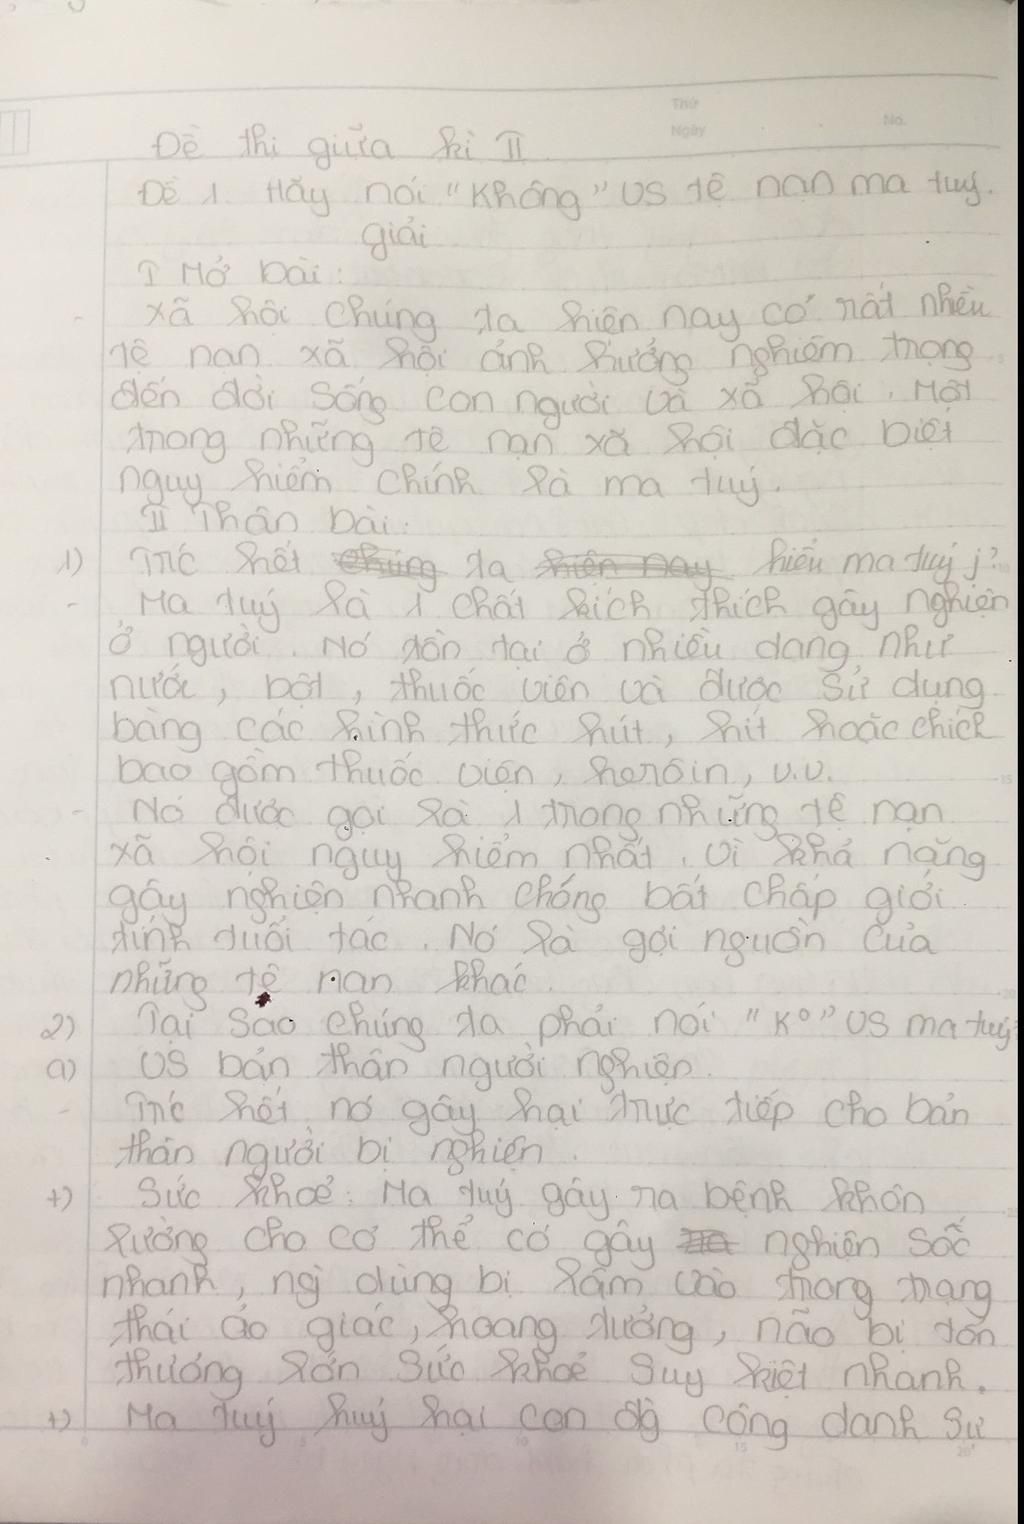 Thứ
Ngày
No.
Đề thi giữa kì II
Đề 1. Hãy nói "Không" vs tệ nạn ma tuý.
giải
I Mở bài:
- xã hội chúng ta hiện nay có rất nhiều
tệ nạn xã hội ảnh hưởng nghiêm trọng
đến đời sống con người và xã hội. Một
trong những tệ nạn xã hội đặc biệt
nguy hiểm chính là ma tuý.
II Thân bài:
1) Trc hết chúng ta hiện nay hiểu ma tuý j?
- Ma tuý là 1 chất kích thích gây nghiện
ở người. Nó tồn tại ở nhiều dạng như
nước, bột, thuốc viên và được sử dụng
bằng các hình thức hút, hít hoặc chích
bao gồm thuốc viên, heroin, v.v.
- Nó được gọi là 1 trong những tệ nạn
xã hội nguy hiểm nhất. Vì khả năng
gây nghiện nhanh chóng bất chấp giới
tính tuổi tác. Nó là gọi nguồn của
những tệ nạn khác.
2) Tại sao chúng ta phải nói "K°" vs ma tuý
a) vs bản thân người nghiện.
- Trc hết nó gây hại trực tiếp cho bản
thân người bị nghiện.
+) Sức khoẻ: Ma tuý gây ra bệnh khôn
lường cho cơ thể có gây nghiện sốc
nhanh, ng` dùng bị lấm vào trong trạng
thái ảo giác, hoang tưởng, não bị tổn
thương lớn sức khoẻ suy kiệt nhanh.
+) Ma tuý huỷ hại con đg công danh sự